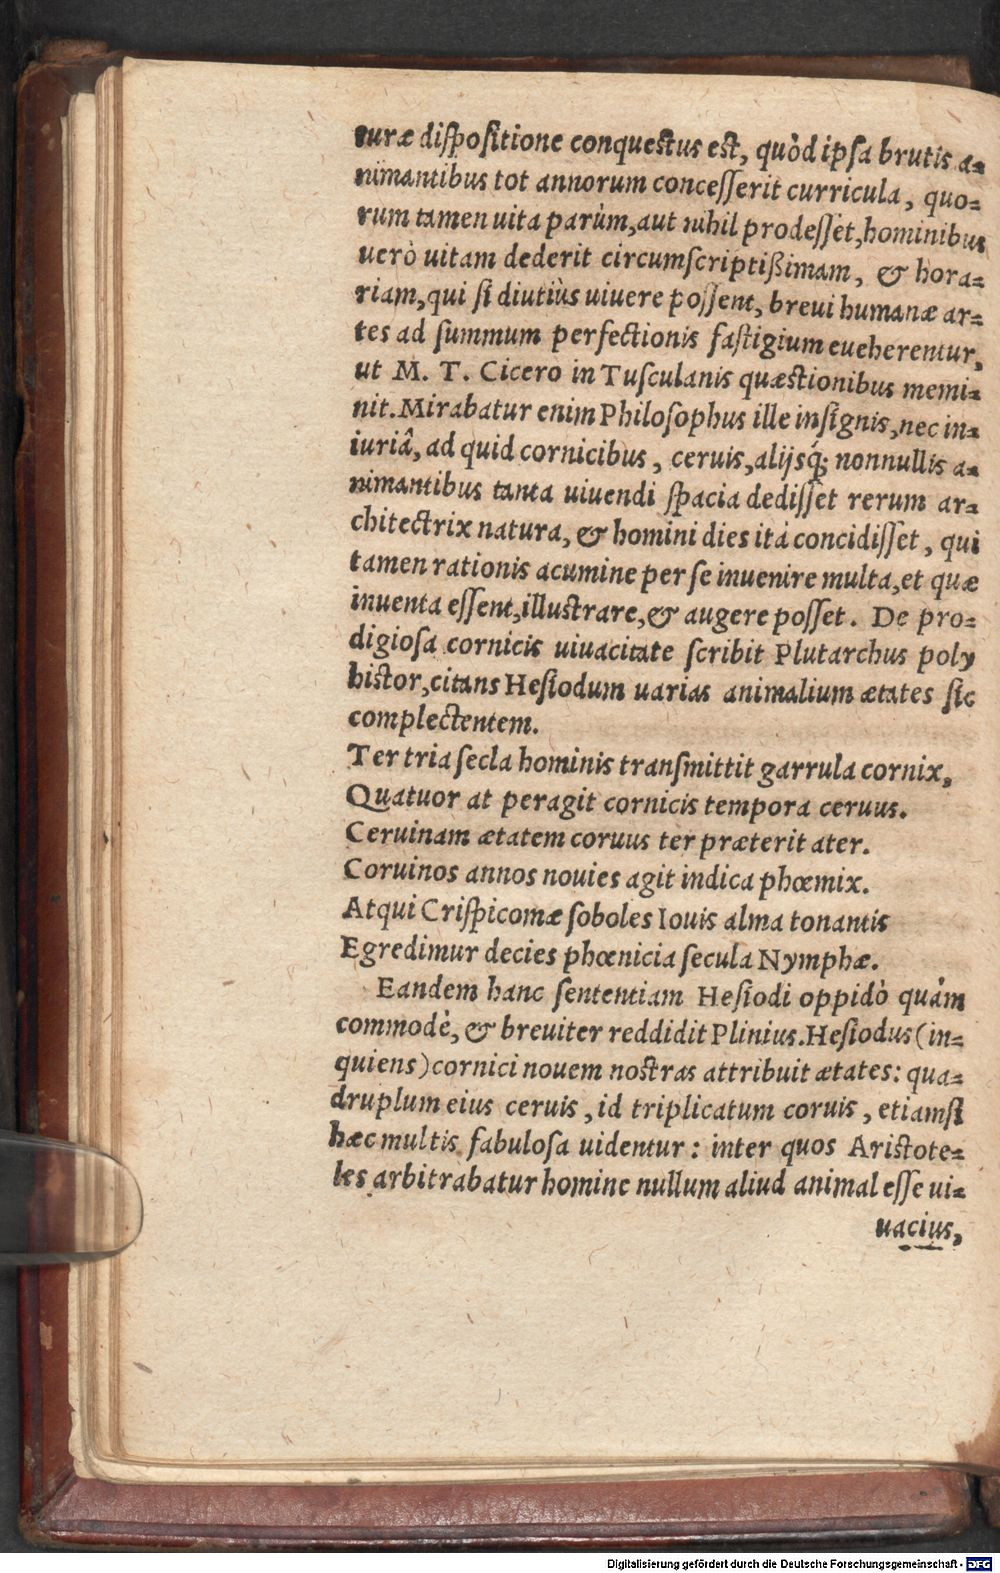 turæ diſpoſitione conqueſtus eſt, quòd ipſa brutis a=
nimantibus tot annorum conceſſerit curricula, quo=
rum tamen uita parùm, aut nihil prodeſſet, hominibus
uerò uitam dederit circumſcriptißimam, & hora=
riam, qui ſi diutiùs uiuere poſſent, breui humanæ ar=
tes ad ſummum perfectionis faſtigium eueherentur,
ut M. T. Cicero in Tuſculanis quæſtionibus memi=
nit. Mirabatur enim Philoſophus ille inſignis, nec in=
iuriâ, ad quid cornicibus, ceruis, alijsq́; nonnullis a=
nimantibus tanta uiuendi ſpacia dediſſet rerum ar=
chitectrix natura, & homini dies ità concidiſſet, qui
tamen rationis acumine per ſe inuenire multa, et quæ
inuenta eſſent, illuſtrare, & augere poſſet. De pro=
digioſa cornicis uiuacitate ſcribit Plutarchus poly
hiſtor, citans Heſiodum uarias animalium ætates ſic
complectentem.
Ter tria ſecla hominis tranſmittit garrula cornix,
Quatuor at peragit cornicis tempora ceruus.
Ceruinam ætatem coruus ter præterit ater.
Coruinos annos nouies agit indica phœmix.
Atqui Criſpicomæ ſoboles Iouis alma tonantis
Egredimur decies phœnicia ſecula Nymphæ.
Eandem hanc ſententiam Heſiodi oppidò quàm
commodè, & breuiter reddidit Plinius. Heſiodus (in=
quiens) cornici nouem noſtras attribuit ætates: qua=
druplum eius ceruis, id triplicatum coruis, etiamſi
hæc multis fabuloſa uidentur: inter quos Ariſtote=
les arbitrabatur homine nullum aliud animal eſſe ui=
uacius,
Digitalisierung gefördert durch die Deutsche Forschungsgemeinschaft - DFG